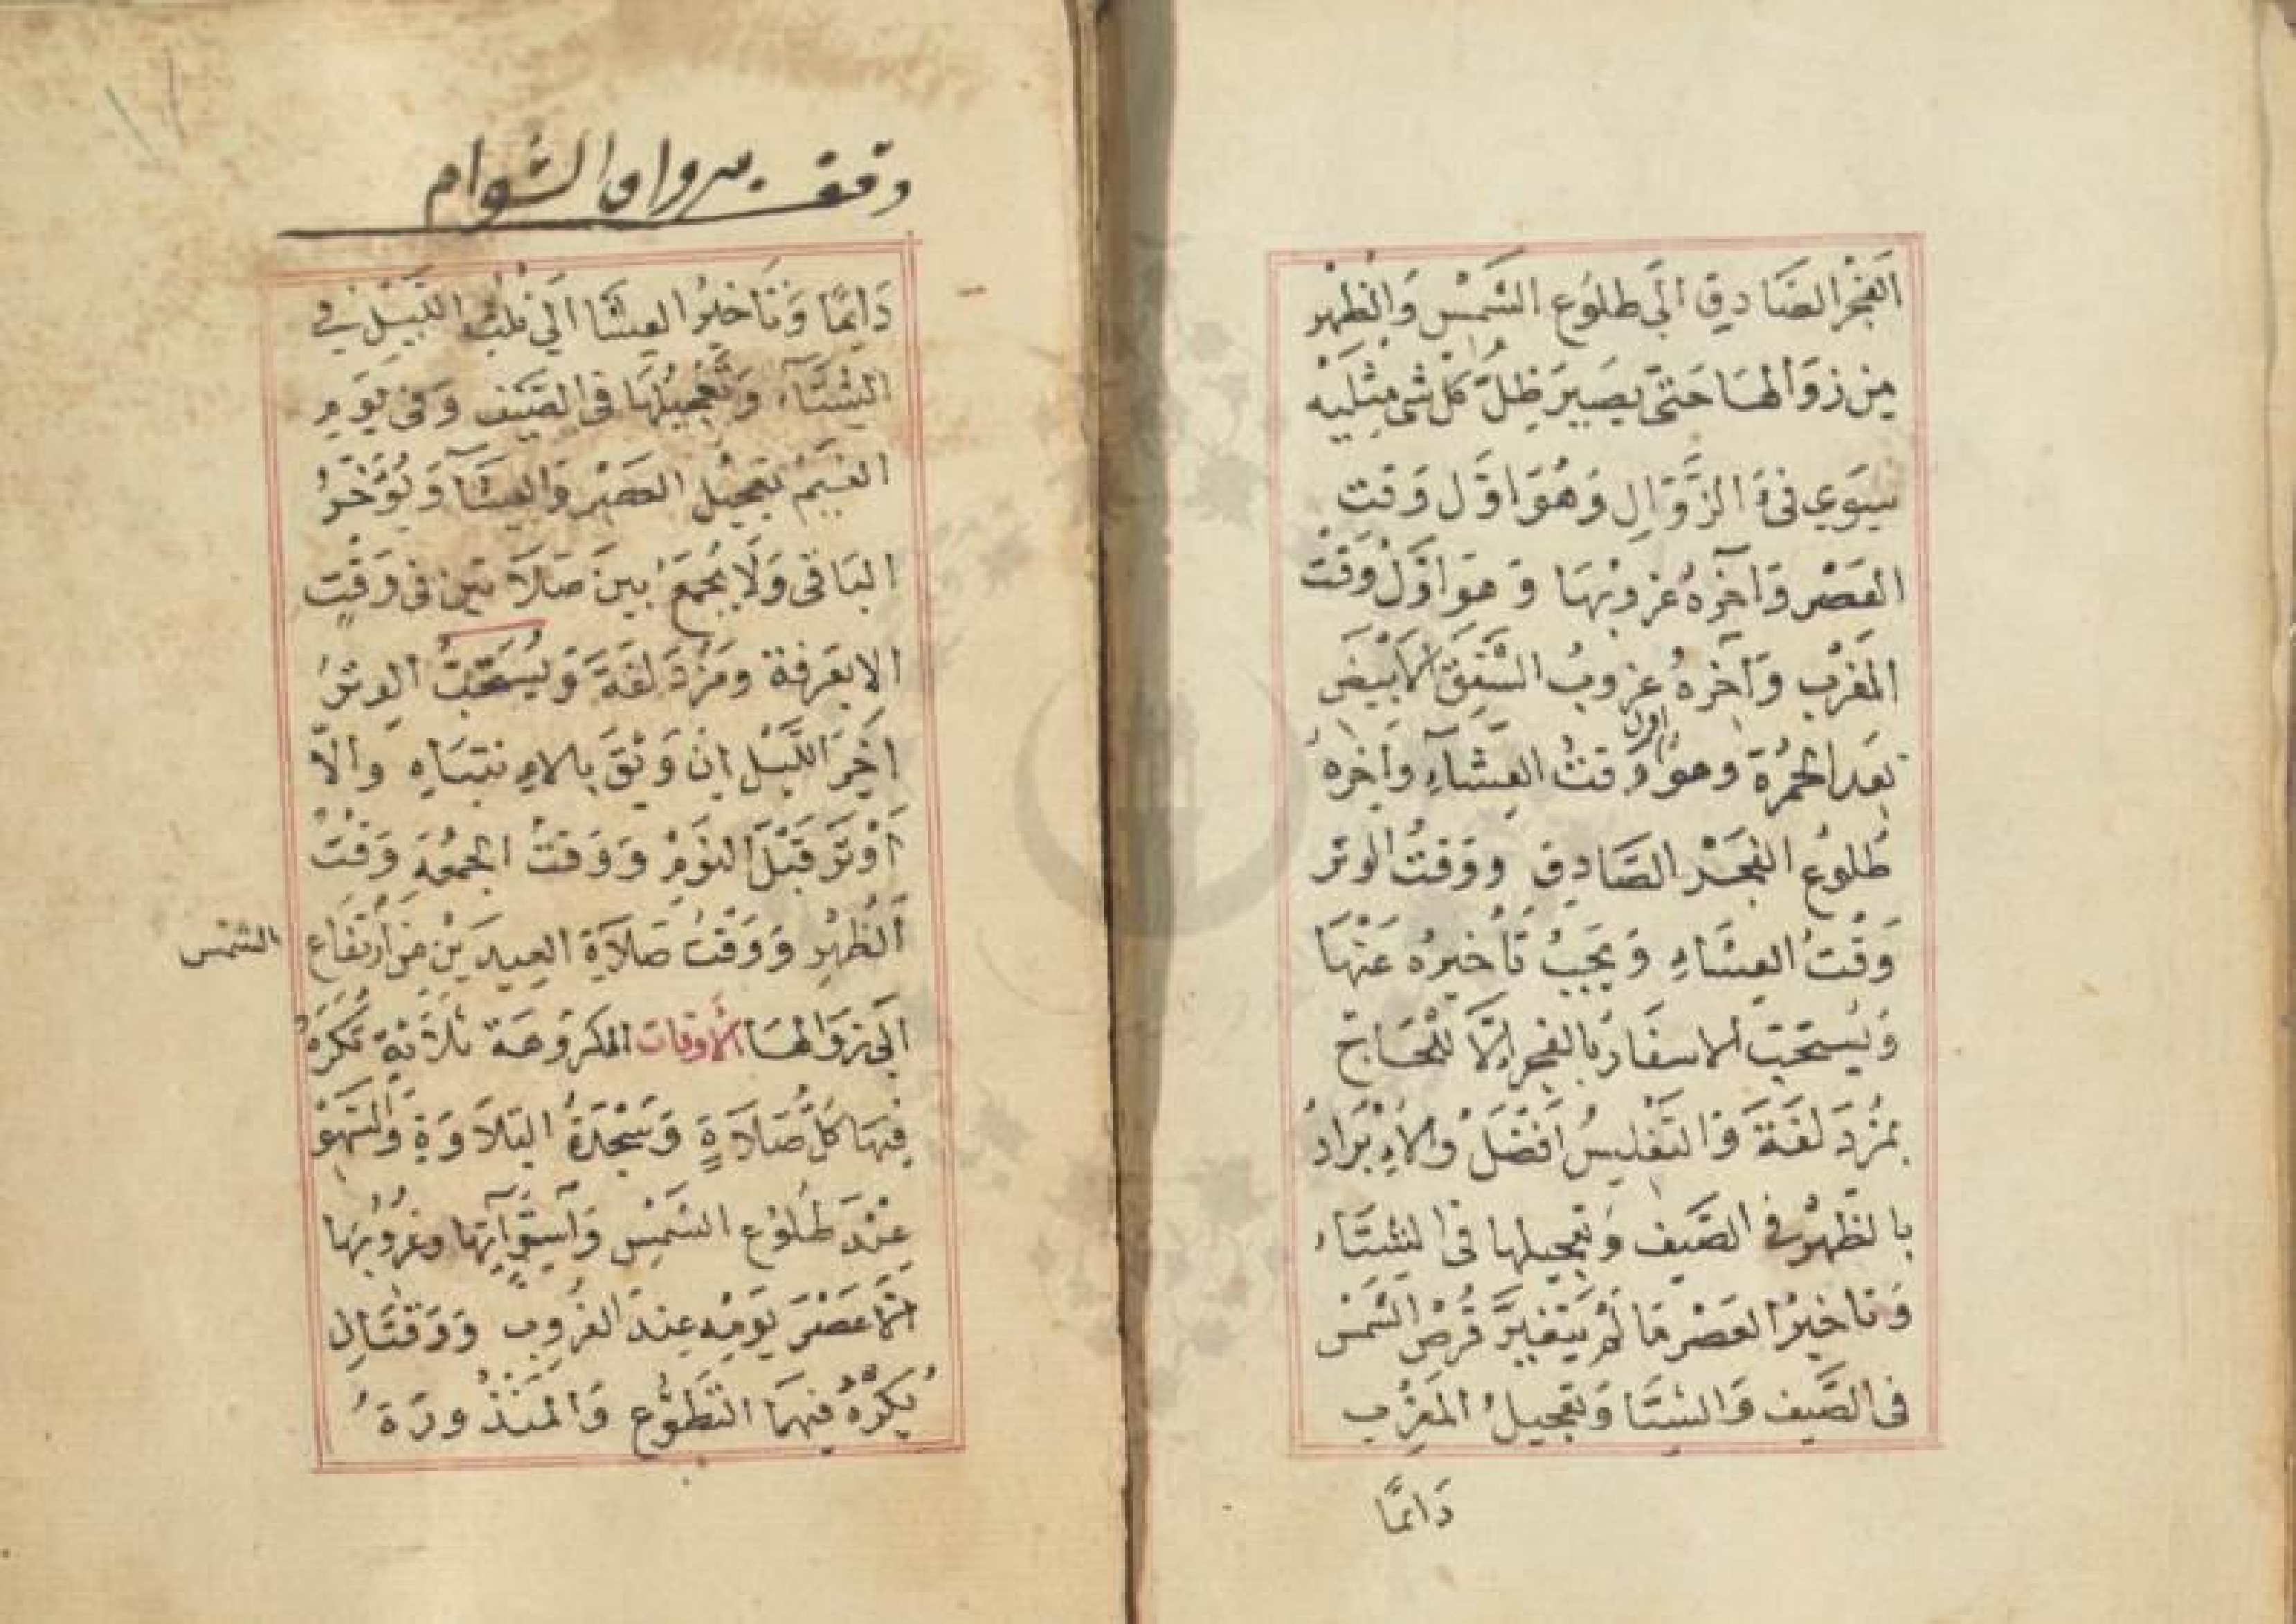 الفَجْرِ الصَّادِقِ اِلَى طُلُوعِ الشَّمْسِ وَالْظُهْرِ
مِنْ زَوَالِهَا حَتىَّ يَصِيرَ ظِلُّ كُلِّ شَىْ مِثْلَيْهِ
سِوَي فىْءِ الزَّوَالِ وَهُوَ اوَّل وَقت
العَصْرِ وَآخِرُهُ غروبُهَا وَ هوَ اوَّلُ وَقْتَ
المَغْرِبْ وَآخِرهُ غروبُ الشَّفَقِ الأَبْيَضِ
بَعدَ الحُمْرَةِ وهوَ اول وَقتُ العِشَآءِ وآخِرهُ
طُلوُعُ الفَجْرِ الصَّادِقِ ووَقتُ الوتر
وَقْتُ العِشَاءِ وَيَجِبُ تَأخيْرُهُ عَنْهَا
وَيُستحَبّ الاسفَارُ بالفجرِ اِلَّا لِلْحَاجّ
بمُزْدَلفَةَ فَالتَغْلِيسُ اَفْضَلُ والاِبْرَادُ
بالظُّهْرِ في الصَّيفِ وَتعجيلها فى الشتَاءِ
وَتاخيرُ العَصْرِ مَا لَمْ يَتغيَّرَ قُرْصُ الشَّمْسْ
فى الصَّيفِ وَالشِتَا وَتعجيلُ المَغْرِبِ
دَائمًا
وقف برواق الشوام
دَائمًا وَتَاخيْرُ العِشَا اِلَي ثُلُثِ اللَّيْلِ في
الشِتَآءِ وَتَعْجيلُهَا فى الصَّيْفِ وَفى يَوْمِ
الغَيْمِ تعجيْلُ العَصْرِ وَالعِشَآ وَيُؤَخّرُ
البَاقى وَلَا يُجْمَعُ بينَ صَلَاتَين فى وَقْتٍ
الا بِعَرَفة ومُزْدَلفَةَ وَيُسْتَحَبُّ الوِترُ
اَخِرَ اللَّيْلِ اِنْ وَثِقَ بِالاِنتبَاهِ وَالَّا
اَوْتَرَ قَبْلَ النَوْمِ وَوَقتُ الجُمعَةِ وَقْتُ
اَلظُهْرِ وَوَقْتُ صَلَاةِ العِيدَيْنِ مِنَ اْرتفَاعِ الشمْس
اِلَى زَوَالِهَا الأوقات المَكْرُوهَة ثلَاثَة تُكْرَهُ
فِيهَا كُلُّ صَلَاةٍ وَسَجْدَةُ التِلَاوَةِ وَالسَّهْوِ
عِنْدَ طُلُوْعِ الشَمْسِ وَاَسْتِوَآئِهَا وغُرُوْبُهَا
اِلَّا عَصْرَ يَوْمِهِ عِندَ الغُرُوبِ وَوَقتَانِ
يُكرَهُ فِيْهِمَا التَطَوُّعِ وَالمَنْذُورَةُ